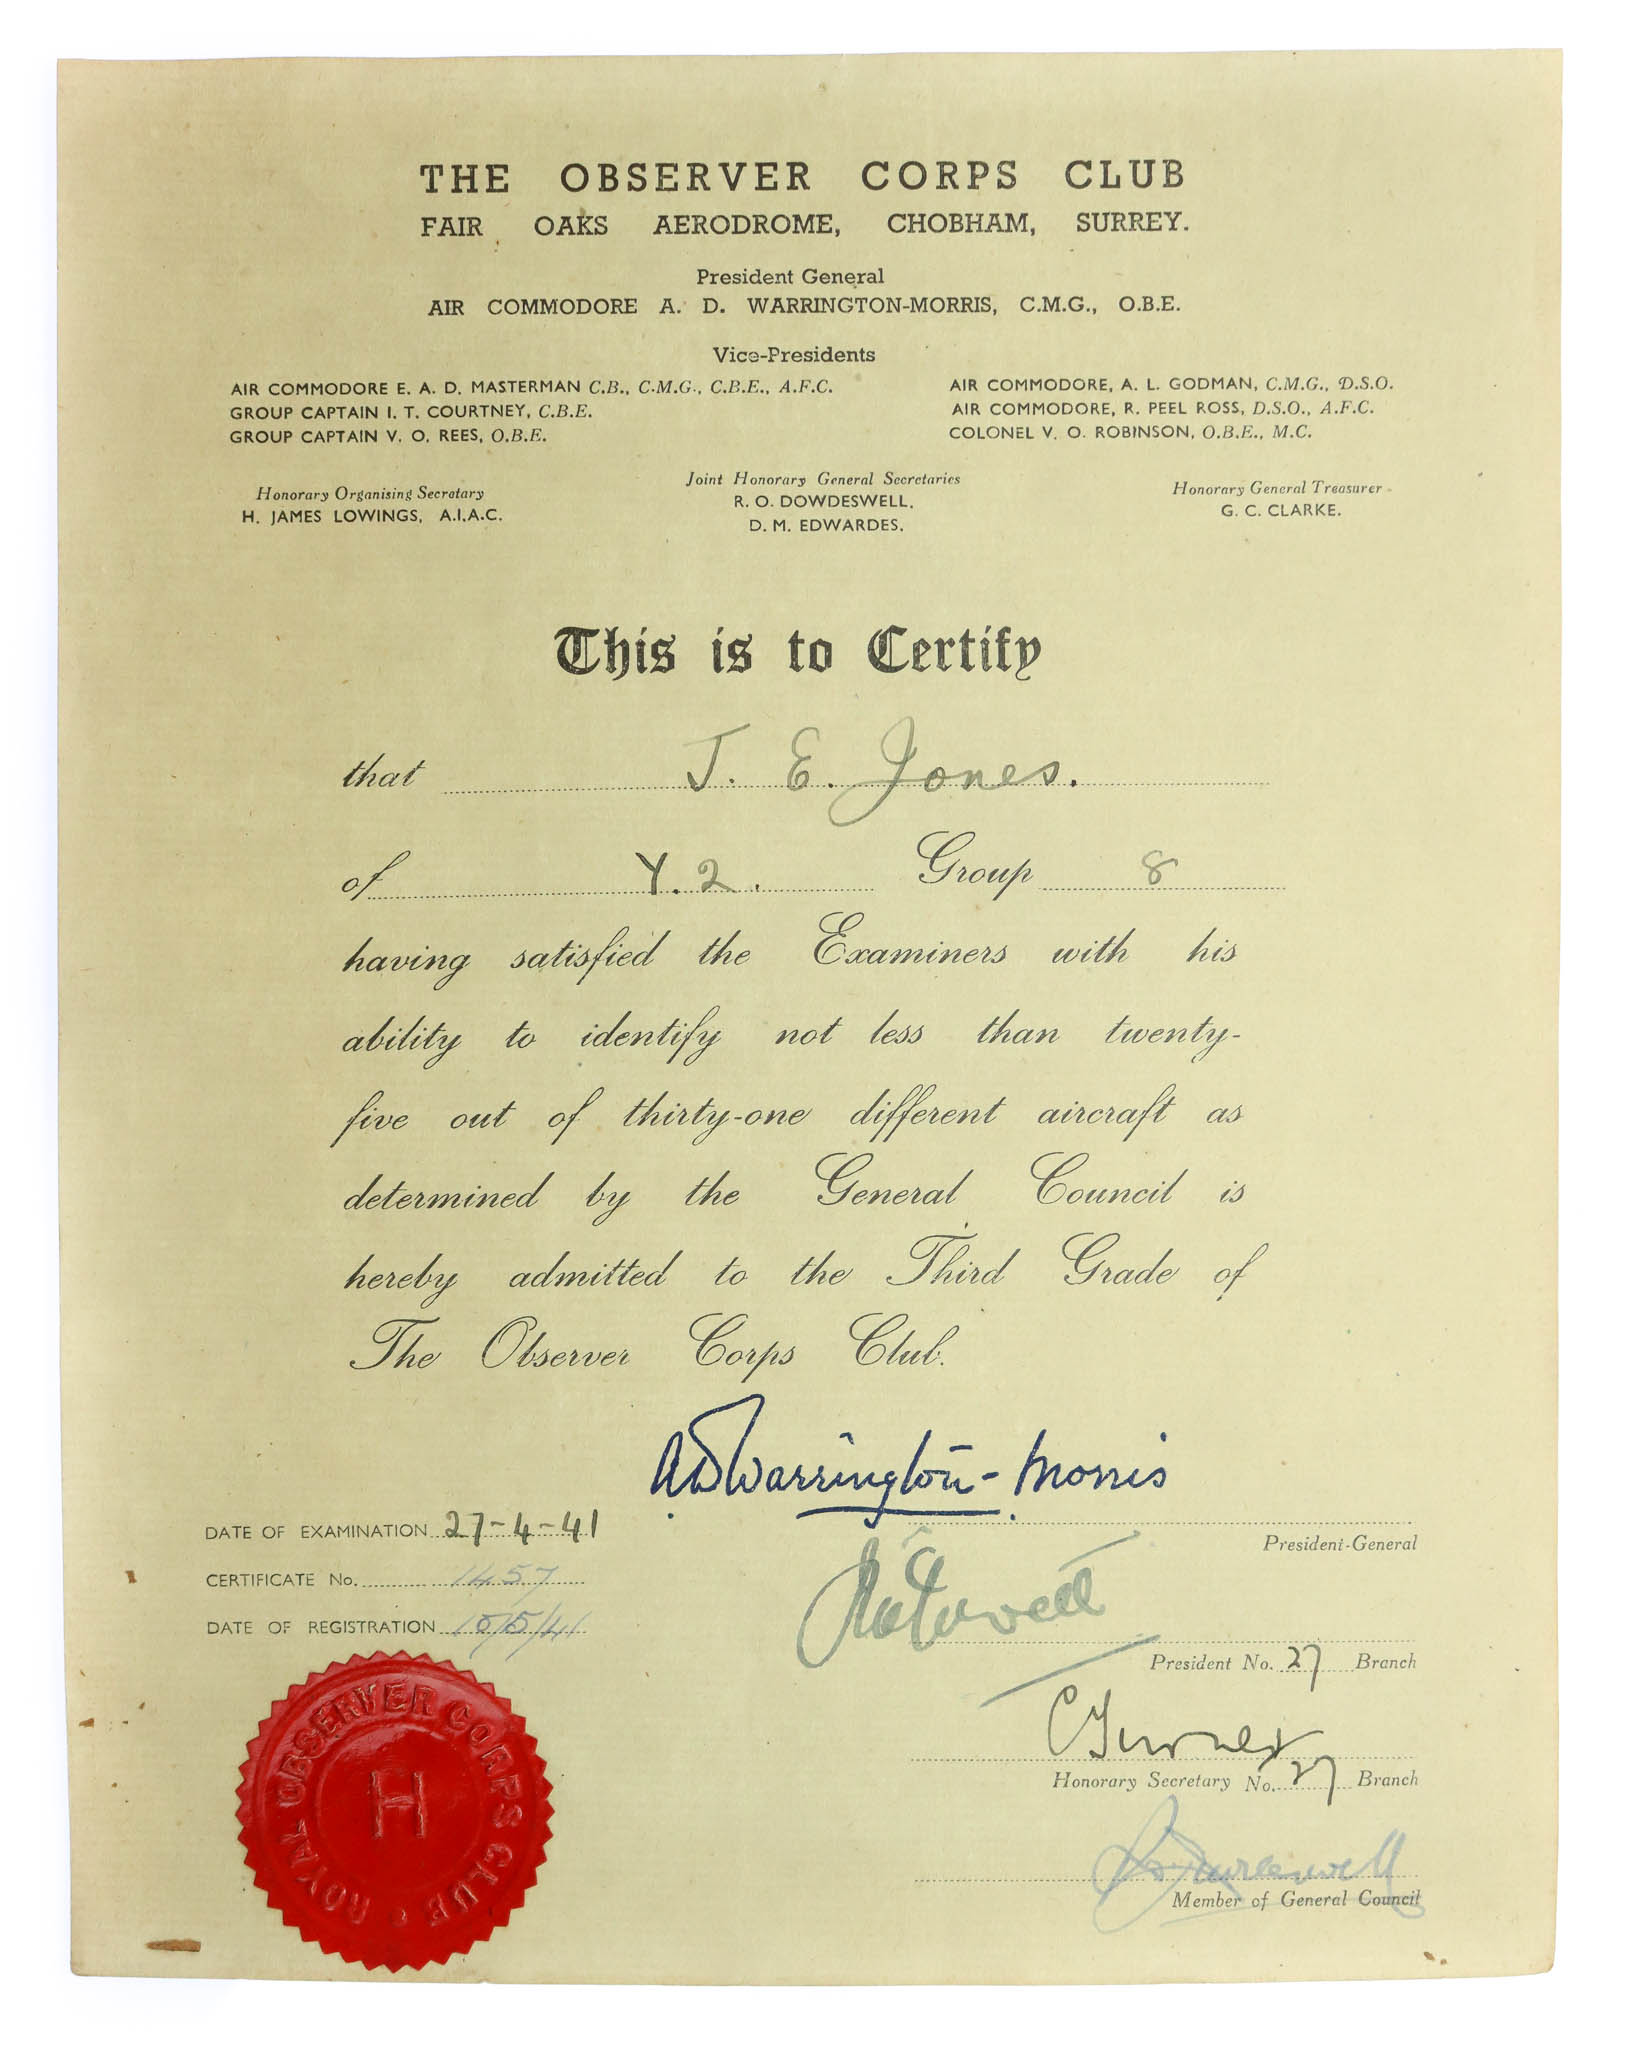 THE OBSERVER CORPS CLUB
FAIR OAKS AERODROME, CHOBHAM, SURREY.
President General
AIR COMMODORE A. D. WARRINGTON-MORRIS, C.M.G., O.B.E.
Vice-Presidents
AIR COMMODORE E. A. D. MASTERMAN C.B., C.M.G., C.B.E., A.F.C.
GROUP CAPTAIN I. T. COURTNEY, C.B.E.
GROUP CAPTAIN V. O. REES, O.B.E.
AIR COMMODORE, A. L. GODMAN, C.M.G., D.S.O.
AIR COMMODORE, R. PEEL ROSS, D.S.O., A.F.C.
COLONEL V. O. ROBINSON, O.B.E., M.C.
Honorary Organising Secretary
H. JAMES LOWINGS, A.I.A.C.
Joint Honorary General Secretaries
R. O. DOWDESWELL.
D. M. EDWARDES.
Honorary General Treasurer
G. C. CLARKE.
This is to Certify
that J. E. Jones.
of Y.2. Group 8
having satisfied the Examiners with his
ability to identify not less than twenty-
five out of thirty-one different aircraft as
determined by the General Council is
hereby admitted to the Third Grade of
The Observer Corps Club.
A D Warrington-Morris
President-General
DATE OF EXAMINATION 27-4-41
CERTIFICATE No. 1457
DATE OF REGISTRATION 10/5/41
President No. 27 Branch
C Turner
Honorary Secretary No. 27 Branch
Member of General Council
ROYAL OBSERVER CORPS CLUB
H